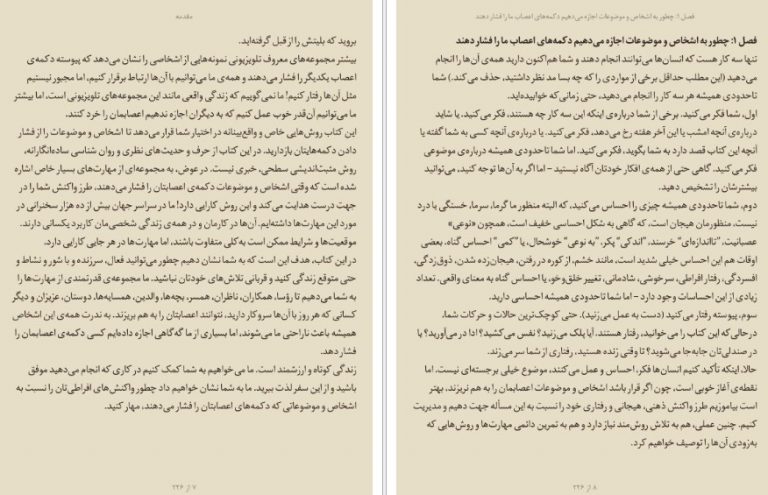 مقدمه
بروید که بلیتش را از قبل گرفته‌اید.
بیشتر مجموعه‌های معروف تلویزیونی نمونه‌هایی از اشخاصی را نشان می‌دهد که پیوسته دکمه‌ی
اعصاب یکدیگر را فشار می‌دهند و همه‌ی ما می‌توانیم با آن‌ها ارتباط برقرار کنیم، اما مجبور نیستیم
مثل آن‌ها رفتار کنیم! ما نمی‌گوییم که زندگی واقعی مانند این مجموعه‌های تلویزیونی است، اما بیشتر
ما می‌توانیم آن‌قدر خوب عمل کنیم که به دیگران اجازه ندهیم اعصابمان را خرد کنند.
این کتاب روش‌هایی خاص و واقع‌بینانه در اختیار شما قرار می‌دهد تا اشخاص و موضوعات را از فشار
دادن دکمه‌هایتان بازدارید. در این کتاب از حرف و حدیث‌های نظری و روان شناسی ساده‌انگارانه،
روش مثبت‌اندیشی سطحی، خبری نیست. در عوض، به مجموعه‌ای از مهارت‌های بسیار خاص اشاره
شده است که وقتی اشخاص و موضوعات دکمه‌ی اعصابتان را فشار می‌دهند، طرز واکنش شما را در
جهت درست هدایت می‌کند و این روش کارایی دارد! ما در سراسر جهان بیش از ده هزار سخنرانی در
مورد این مهارت‌ها داشته‌ایم. آن‌ها در کارمان و در همه‌ی زندگی شخصی‌مان کاربرد یکسانی دارند.
موقعیت‌ها و شرایط ممکن است به کلی متفاوت باشند، اما مهارت‌ها در هر جایی کارایی دارد.
در این کتاب، هدف این است که به شما نشان دهیم چطور می‌توانید فعال، سرزنده و با شور و نشاط و
حتی متوقع زندگی کنید و قربانی تلاش‌های خودتان نباشید. ما مجموعه‌ی قدرتمندی از مهارت‌ها را
به شما می‌دهیم تا رؤسا، همکاران، ناظران، همسر، بچه‌ها، والدین، همسایه‌ها، دوستان، عزیزان و دیگر
کسانی که هر روز با آن‌ها سروکار دارید، نتوانند اعصابتان را به هم بریزند. به ندرت همه‌ی این اشخاص
همیشه باعث ناراحتی ما می‌شوند، اما بسیاری از ما گه‌گاهی اجازه داده‌ایم کسی دکمه‌ی اعصابمان را
فشار دهد.
زندگی کوتاه و ارزشمند است. ما می‌خواهیم به شما کمک کنیم در کاری که انجام می‌دهید موفق
باشید و از این سفر لذت ببرید. ما به شما نشان خواهیم داد چطور واکنش‌های افراطی‌تان را نسبت به
اشخاص و موضوعاتی که دکمه‌های اعصابتان را فشار می‌دهند، مهار کنید.
۷ از ۲۲۶
فصل ۱: چطور به اشخاص و موضوعات اجازه می‌دهیم دکمه‌های اعصاب ما را فشار دهند
فصل ۱: چطور به اشخاص و موضوعات اجازه می‌دهیم دکمه‌های اعصاب ما را فشار دهند
تنها سه کار هست که انسان‌ها می‌توانند انجام دهند و شما هم‌اکنون دارید همه‌ی آن‌ها را انجام
می‌دهید (این مطلب حداقل برخی از مواردی را که چه بسا مد نظر داشتید، حذف می‌کند.) شما
تاحدودی همیشه هر سه کار را انجام می‌دهید، حتی زمانی که خوابیده‌اید.
اول، شما فکر می‌کنید. برخی از شما درباره‌ی اینکه این سه کار چه هستند، فکر می‌کنید. یا شاید
درباره‌ی آنچه امشب یا این آخر هفته رخ می‌دهد، فکر می‌کنید. یا درباره‌ی آنچه کسی به شما گفته یا
آنچه این کتاب قصد دارد به شما بگوید، فکر می‌کنید. اما شما تاحدودی همیشه درباره‌ی موضوعی
فکر می‌کنید. گاهی حتی از همه‌ی افکار خودتان آگاه نیستید – اما اگر به آن‌ها توجه کنید، می‌توانید
بیشترشان را تشخیص دهید.
دوم، شما تاحدودی همیشه چیزی را احساس می‌کنید، که البته منظور ما گرما، سرما، خستگی یا درد
نیست، منظورمان هیجان است، که گاهی به شکل احساسی خفیف است، همچون «نوعی»
عصبانیت، "تااندازه‌ای" خرسند، "اندکی" پکر، "به نوعی" خوشحال، یا "کمی" احساس گناه. بعضی
اوقات هم این احساس خیلی شدید است، مانند خشم، از کوره در رفتن، هیجان‌زده شدن، ذوق‌زدگی،
افسردگی، رفتار افراطی، سرخوشی، شادمانی، تغییر خلق‌وخو، یا احساس گناه به معنای واقعی. تعداد
زیادی از این احساسات وجود دارد – اما شما تاحدودی همیشه احساسی دارید.
سوم، پیوسته رفتار می‌کنید (دست به عمل می‌زنید). حتی کوچک‌ترین حالات و حرکات شما،
درحالی‌که این کتاب را می‌خوانید، رفتار هستند. آیا پلک می‌زنید؟ نفس می‌کشید؟ ادا در می‌آورید؟ یا
در صندلی‌تان جابه‌جا می‌شوید؟ تا وقتی زنده هستید، رفتاری از شما سر می‌زند.
حالا، اینکه تأکید کنیم انسان‌ها فکر، احساس و عمل می‌کنند، موضوع خیلی برجسته‌ای نیست. اما
نقطه‌ی آغاز خوبی است، چون اگر قرار باشد اشخاص و موضوعات اعصابمان را به هم نریزند، بهتر
است بیاموزیم طرز واکنش ذهنی، هیجانی و رفتاری خود را نسبت به این مسأله جهت دهیم و مدیریت
کنیم. چنین عملی، هم به تلاش روش‌مند نیاز دارد و هم به تمرین دائمی مهارت‌ها و روش‌هایی که
به‌زودی آن‌ها را توصیف خواهیم کرد.
۸ از ۲۲۶